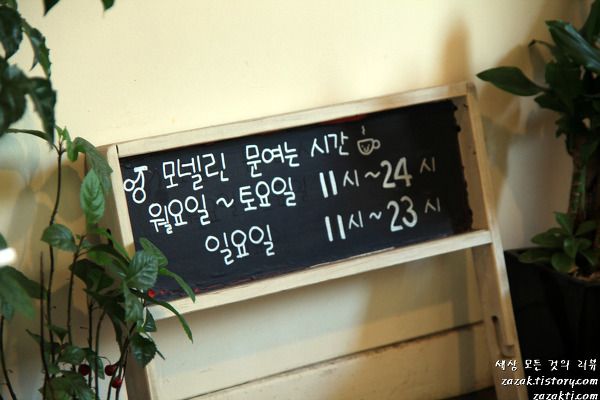 영 모넬린 문여는 시간
월요일~토요일 11시~24시
일요일 11시~23시
세상 모든 것의 리뷰
zazak.tistory.com
zazakti.com